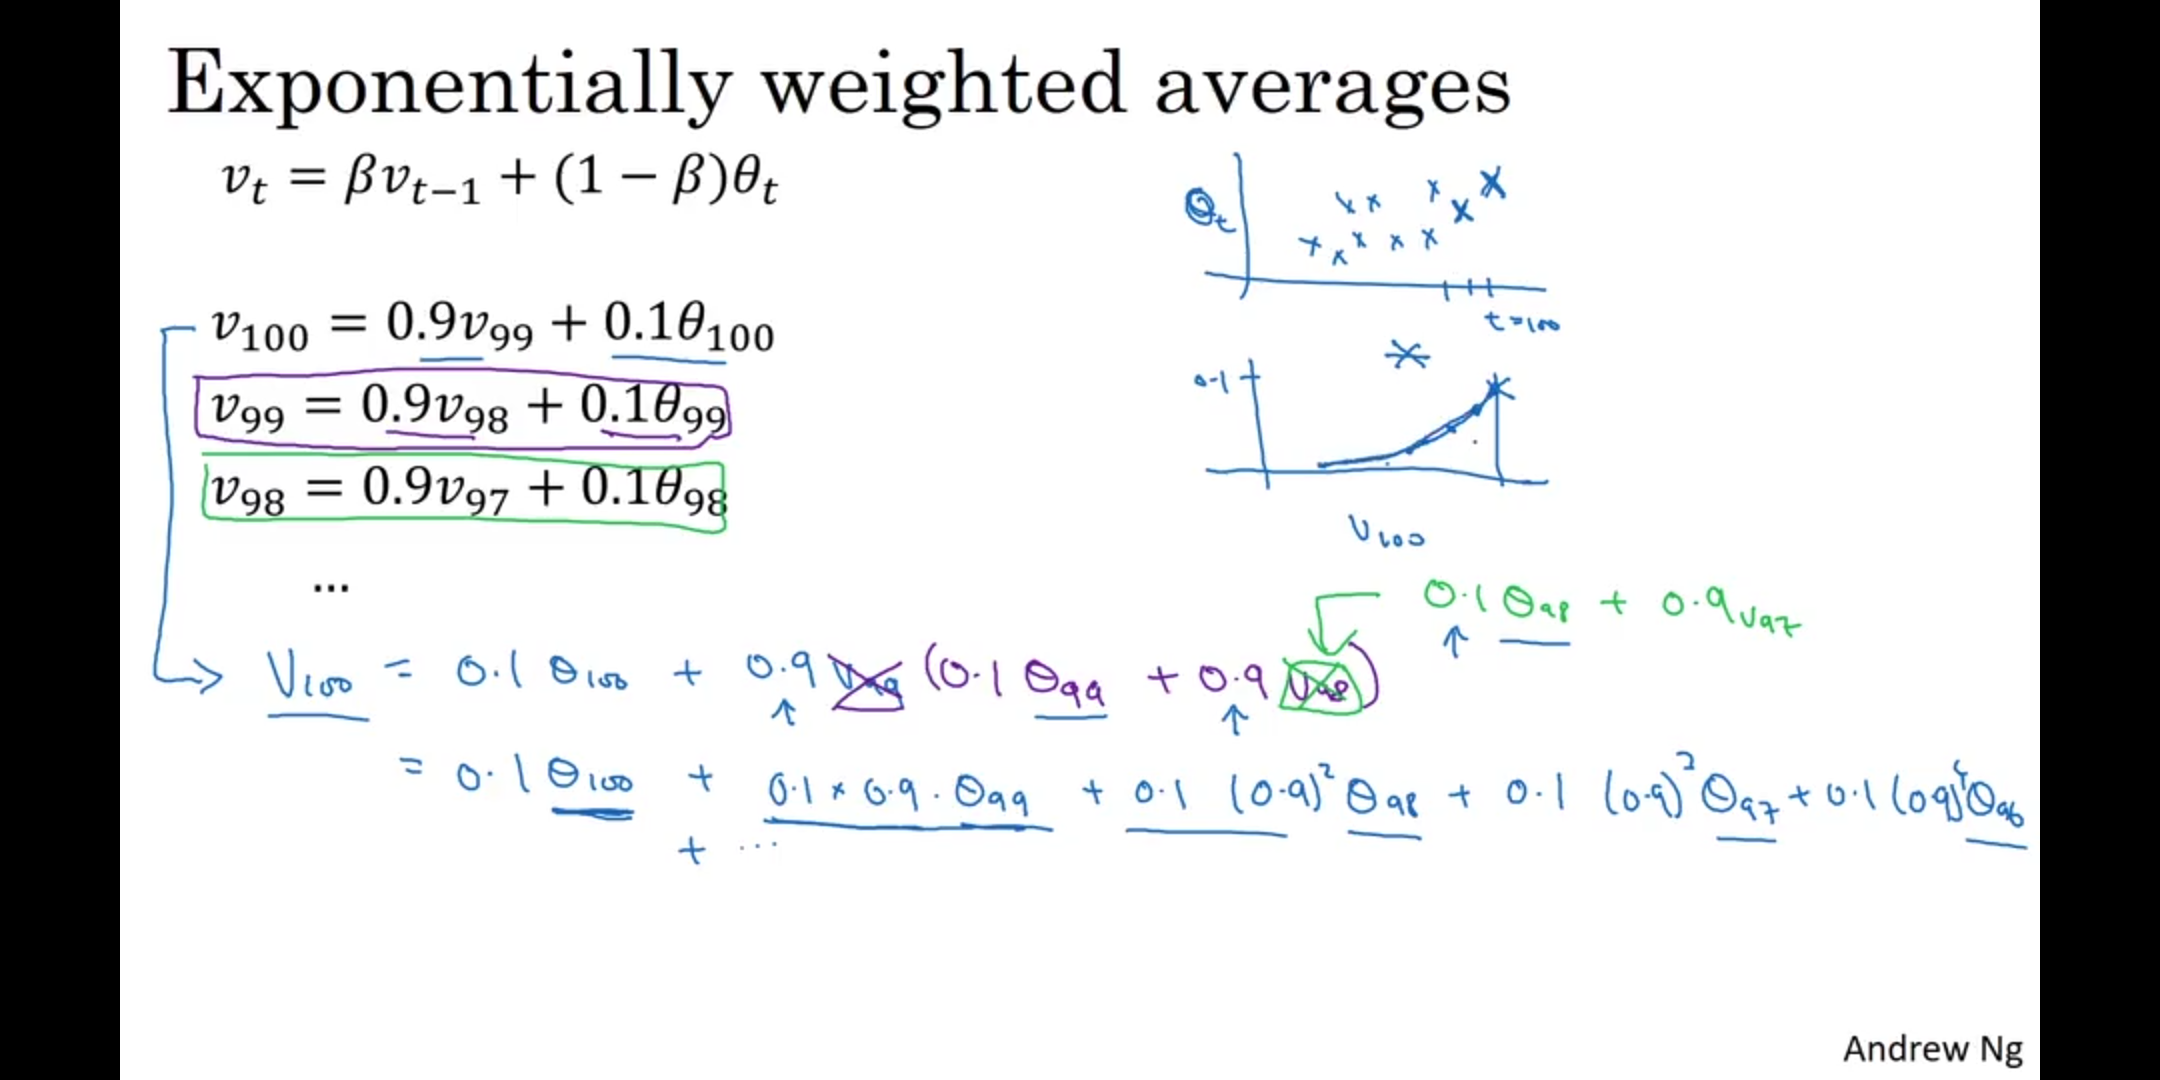 Exponentially weighted averages
vₜ = βvₜ₋₁ + (1 − β)θₜ
v₁₀₀ = 0.9v₉₉ + 0.1θ₁₀₀
v₉₉ = 0.9v₉₈ + 0.1θ₉₉
v₉₈ = 0.9v₉₇ + 0.1θ₉₈
...
θₜ
t=100
0.1
V₁₀₀
0.1 θ₉₈ + 0.9 v₉₇
V₁₀₀ = 0.1 θ₁₀₀ + 0.9 v₉₉ (0.1 θ₉₉ + 0.9 v₉₈)
= 0.1 θ₁₀₀ + 0.1 × 0.9 · θ₉₉ + 0.1 (0.9)² θ₉₈ + 0.1 (0.9)³ θ₉₇ + 0.1 (0.9)⁴ θ₉₆
+ ...
Andrew Ng